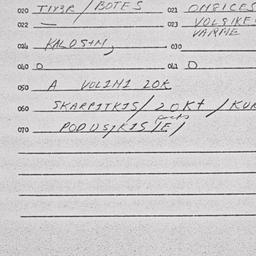 020 TIY3R / BOTES 021 ONGICES
022 — 023 VOLSIKE
VARME
024 KALOSIN, 030
040 0 041 0
050 A VOLINI 20K
060 SKARPITKIS / 20K+ / KUR
070 PODUSIKIS /E/